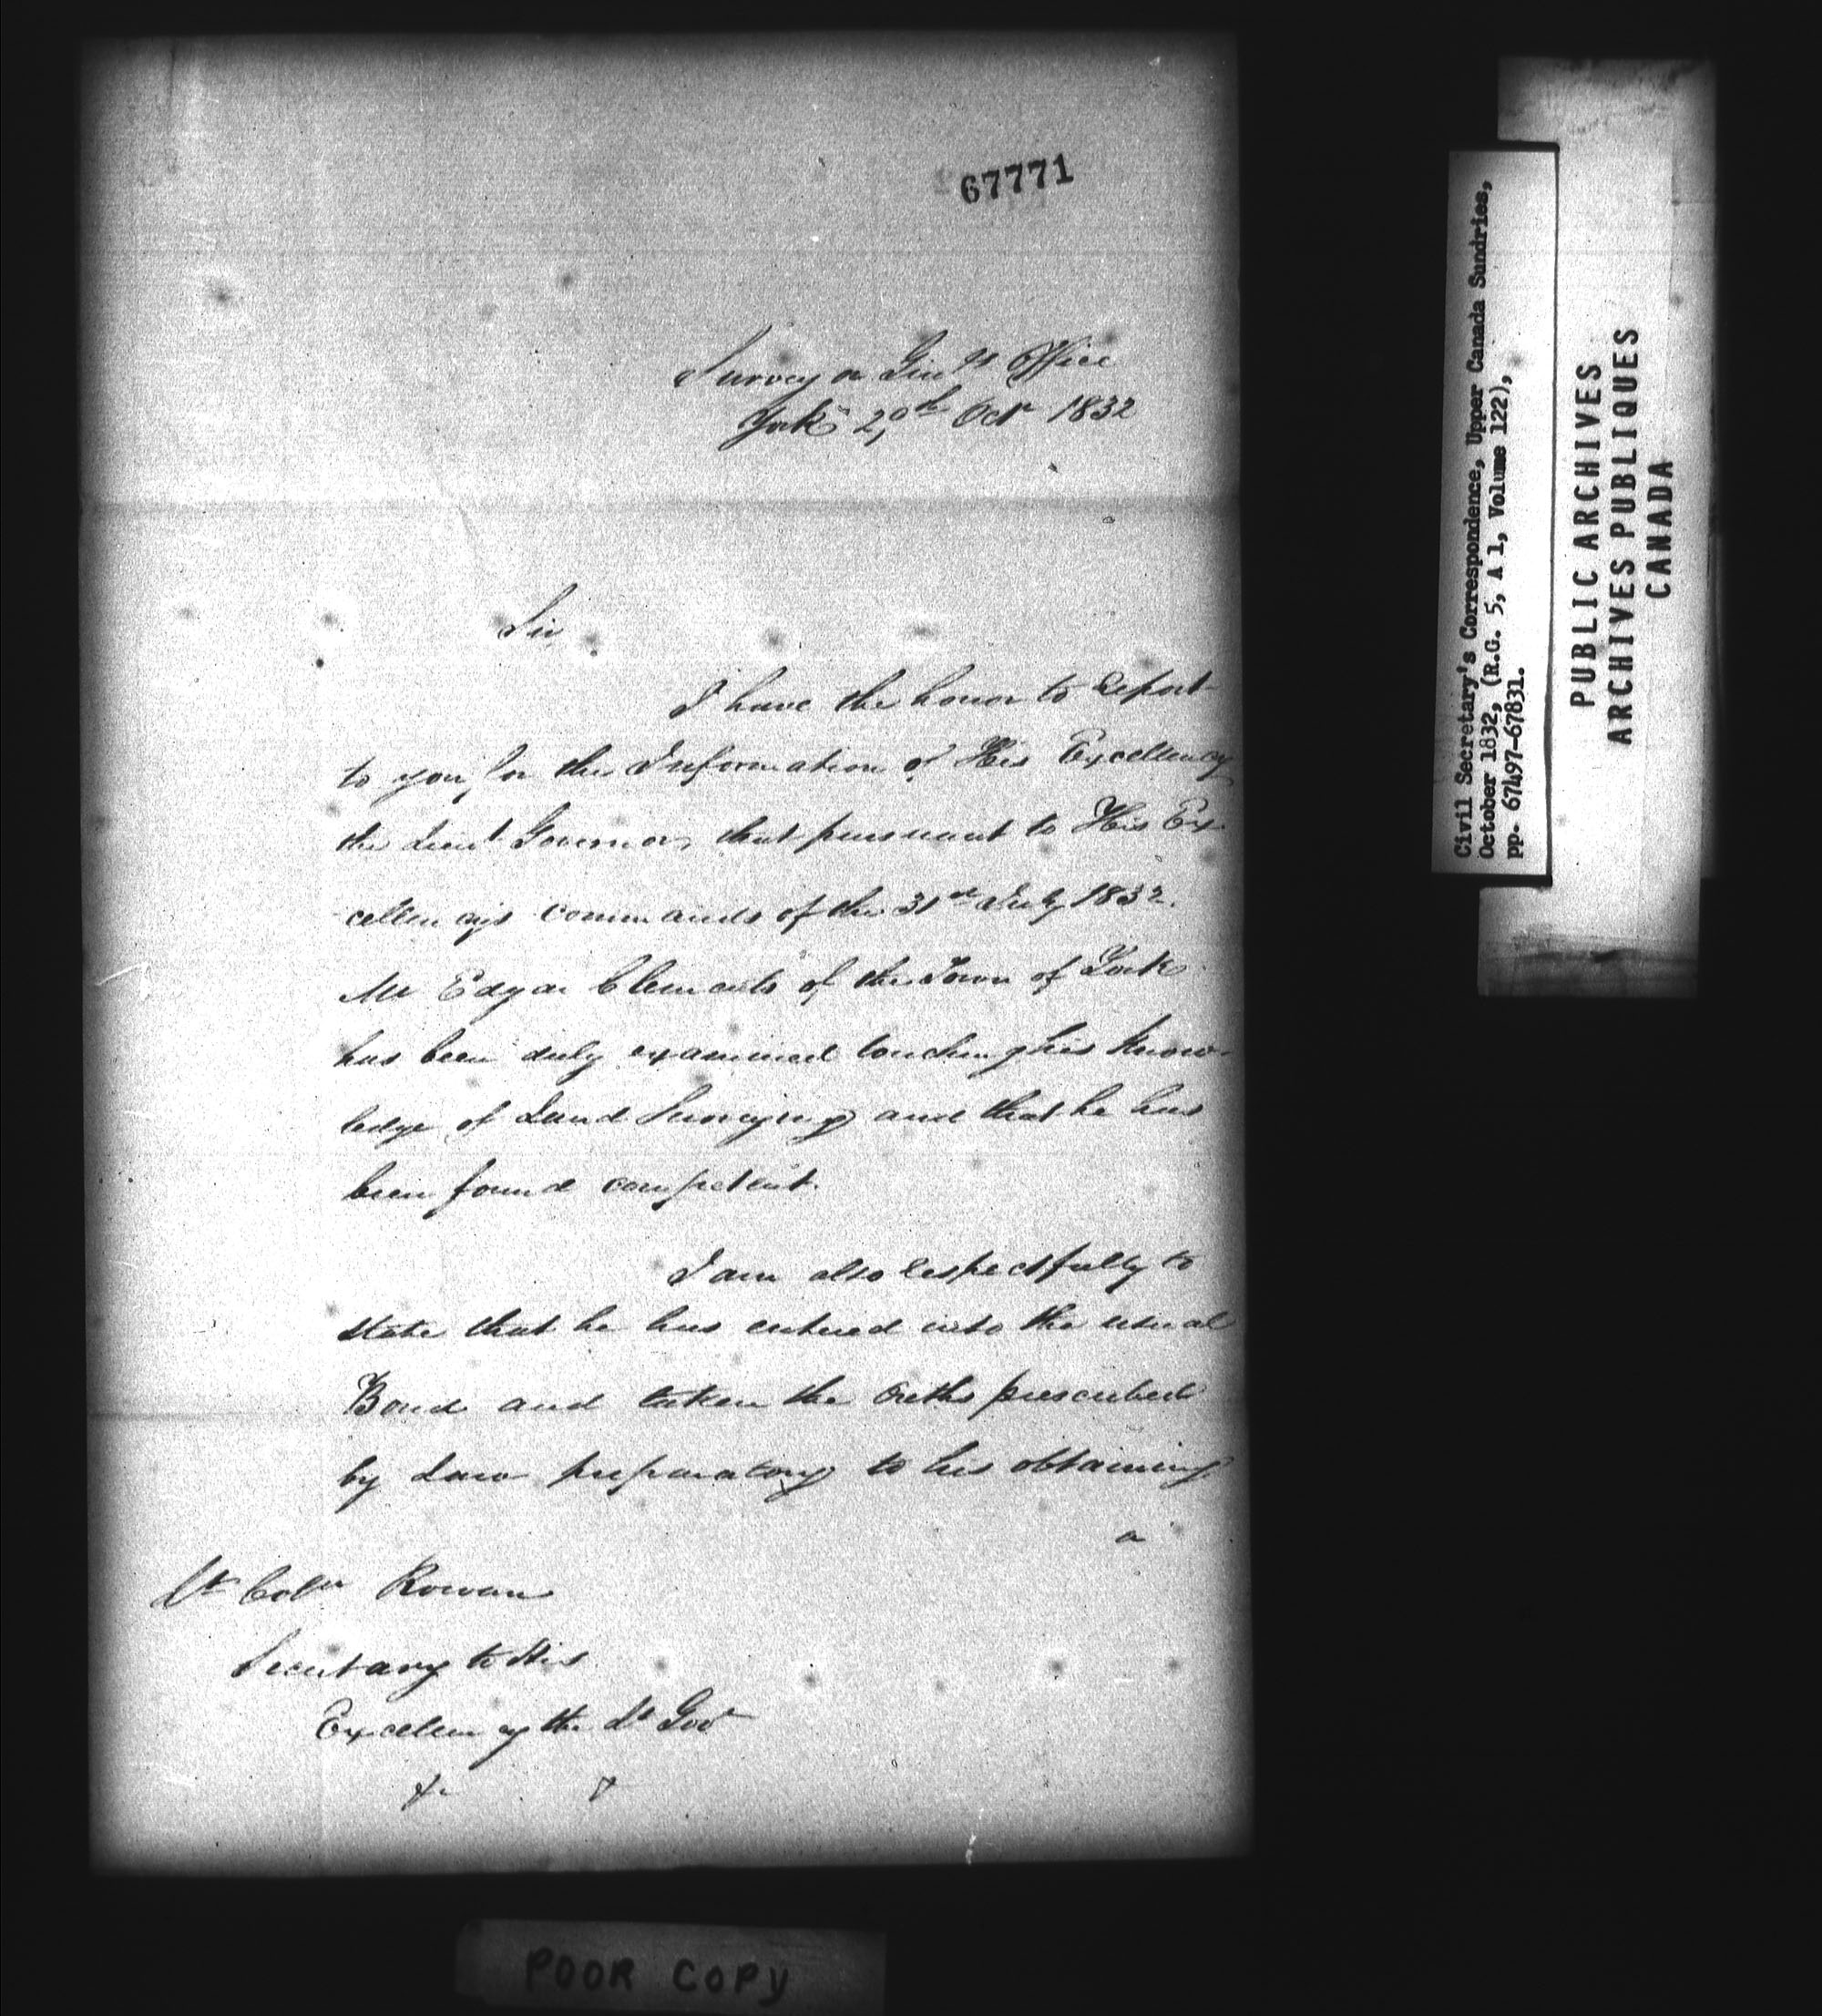 67771
Surveyor Gen.ls Office
York 29th Octr 1832
Sir,
I have the honor to report
to you, for the Information of His Excellency
the Lieut Governor, that pursuant to His Ex-
cellencys commands of the 31st July 1832.
Mr Edgar Clements of the Town of York
has been duly examined touching his know-
ledge of Land Surveying and that he has
been found competent.
I am also respectfully to
state that he has entered into the usual
Bond and taken the Oaths prescribed
by Law preparatory to his obtaining
a
Lt Coln Rowan
Secretary to His
Excellency the Lt Govr
&c &
Civil Secretary's Correspondence, Upper Canada Sundries,
October 1832, (R.G. 5, A 1, Volume 122),
pp. 67497-67831.
PUBLIC ARCHIVES
ARCHIVES PUBLIQUES
CANADA
POOR COPY